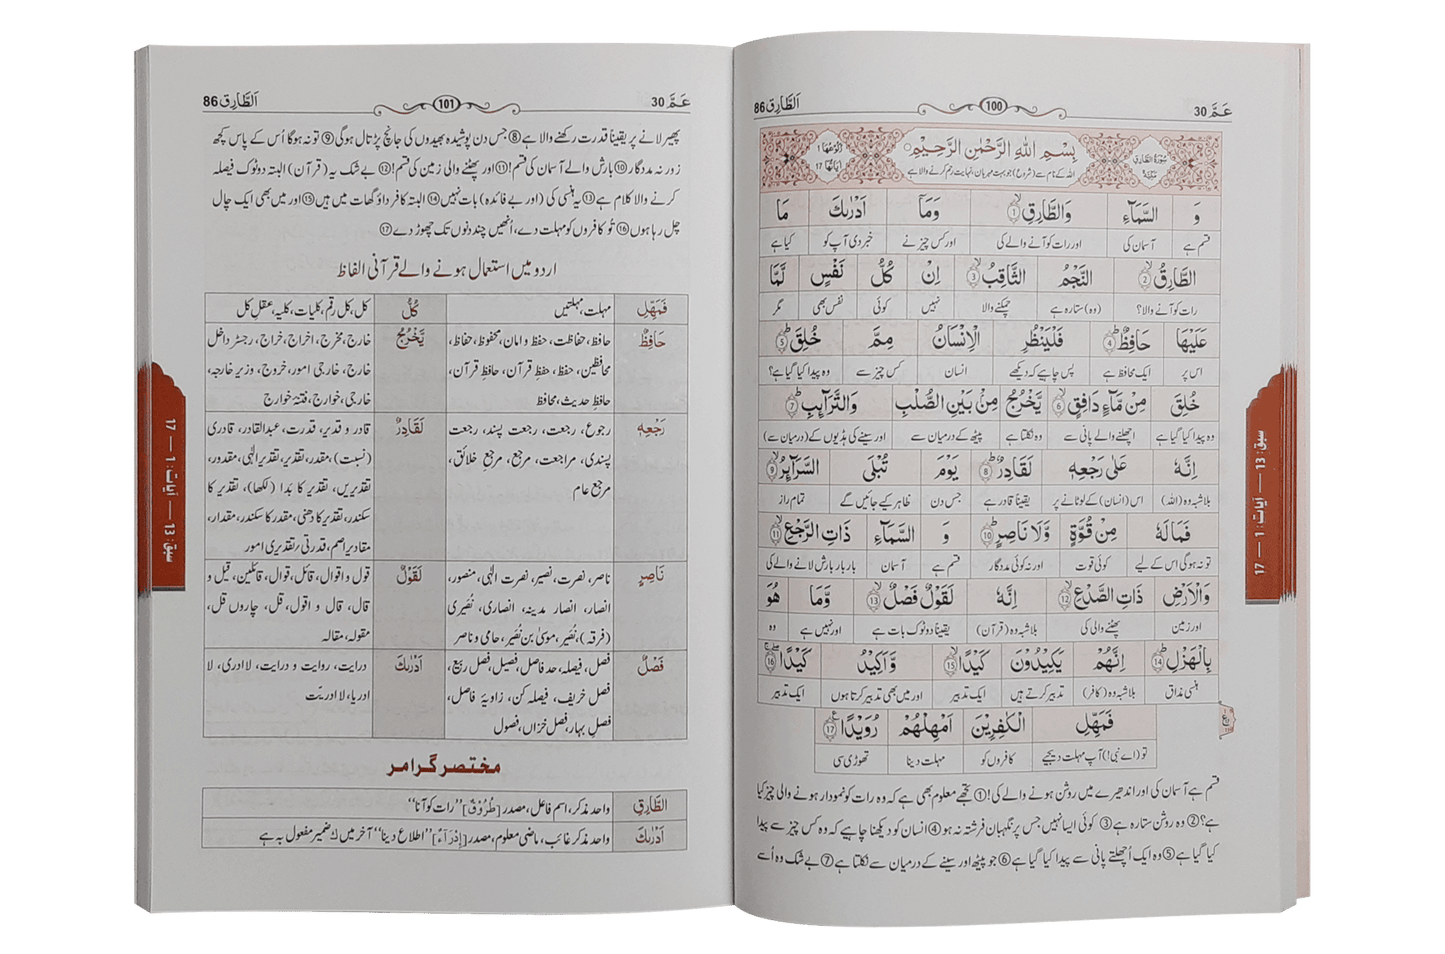 عَمَّ 30
100
اَلطَّارِق 86
سُوْرَةُ الطَّارِقِ مَكِّيَّةٌ
بِسْمِ اللهِ الرَّحْمٰنِ الرَّحِيْمِ
اٰيَاتُهَا 17 رُكُوْعُهَا 1
اللہ کے نام سے (شروع) جو بہت مہربان، نہایت رحم کرنے والا ہے
وَ السَّمَآءِ وَالطَّارِقِ ① وَمَآ اَدْرٰىكَ مَا
قسم ہے آسمان کی اور رات کو آنے والے کی اور کس چیز نے خبر دی آپ کو کیا ہے
الطَّارِقُ ② النَّجْمُ الثَّاقِبُ ③ اِنْ كُلُّ نَفْسٍ لَّمَّا
رات کو آنے والا؟ (وہ) ستارہ ہے چمکنے والا نہیں کوئی نفس بھی مگر
عَلَيْهَا حَافِظٌ ④ فَلْيَنْظُرِ الْاِنْسَانُ مِمَّ خُلِقَ ⑤
اس پر ایک محافظ ہے پس چاہیے کہ دیکھے انسان کس چیز سے وہ پیدا کیا گیا ہے؟
خُلِقَ مِنْ مَّآءٍ دَافِقٍ ⑥ يَّخْرُجُ مِنْۢ بَيْنِ الصُّلْبِ وَالتَّرَآئِبِ ⑦
وہ پیدا کیا گیا ہے اچھلنے والے پانی سے وہ نکلتا ہے پیٹھ کے درمیان سے اور سینے کی ہڈیوں کے (درمیان سے)
اِنَّهٗ عَلٰى رَجْعِهٖ لَقَادِرٌ ⑧ يَوْمَ تُبْلَى السَّرَآئِرُ ⑨
بلاشبہ وہ (اللہ) اس (انسان) کے لوٹانے پر یقیناً قادر ہے جس دن ظاہر کیے جائیں گے تمام راز
فَمَا لَهٗ مِنْ قُوَّةٍ وَّلَا نَاصِرٍ ⑩ وَ السَّمَآءِ ذَاتِ الرَّجْعِ ⑪
تو نہ ہوگی اس کے لیے کوئی قوت اور نہ کوئی مددگار قسم ہے آسمان بار بار بارش لانے والے کی
وَالْاَرْضِ ذَاتِ الصَّدْعِ ⑫ اِنَّهٗ لَقَوْلٌ فَصْلٌ ⑬ وَّمَا هُوَ
اور زمین پھٹنے والی کی بلاشبہ وہ (قرآن) یقیناً دوٹوک بات ہے اور نہیں ہے وہ
بِالْهَزْلِ ⑭ اِنَّهُمْ يَكِيْدُوْنَ كَيْدًا ⑮ وَّاَكِيْدُ كَيْدًا ⑯
ہنسی مذاق بلاشبہ وہ (کافر) تدبیر کرتے ہیں ایک تدبیر اور میں بھی تدبیر کرتا ہوں ایک تدبیر
فَمَهِّلِ الْكٰفِرِيْنَ اَمْهِلْهُمْ رُوَيْدًا ⑰
تو (اے نبی!) آپ مہلت دیجیے کافروں کو مہلت دینا تھوڑی سی
قسم ہے آسمان کی اور اندھیرے میں روشن ہونے والے کی! ① تجھے معلوم بھی ہے کہ وہ رات کو نمودار ہونے والی چیز کیا
ہے؟ ② وہ روشن ستارہ ہے ③ کوئی ایسا نہیں جس پر نگہبان فرشتہ نہ ہو ④ انسان کو دیکھنا چاہیے کہ وہ کس چیز سے پیدا
کیا گیا ہے ⑤ وہ ایک اُچھلتے پانی سے پیدا کیا گیا ہے ⑥ جو پیٹھ اور سینے کے درمیان سے نکلتا ہے ⑦ بے شک وہ اُسے
سبق: 13 — آیات: 1 — 17
عَمَّ 30
101
اَلطَّارِق 86
پھیر لانے پر یقیناً قدرت رکھنے والا ہے ⑧ جس دن پوشیدہ بھیدوں کی جانچ پڑتال ہوگی ⑨ تو نہ ہوگا اُس کے پاس کچھ
زور نہ مددگار ⑩ بارش والے آسمان کی قسم! ⑪ اور پھٹنے والی زمین کی قسم! ⑫ بے شک یہ (قرآن) البتہ دوٹوک فیصلہ
کرنے والا کلام ہے ⑬ یہ ہنسی کی (اور بے فائدہ) بات نہیں ⑭ البتہ کافر داؤ گھات میں ہیں ⑮ اور میں بھی ایک چال
چل رہا ہوں ⑯ تُو کافروں کو مہلت دے، اُنھیں چند دنوں تک چھوڑ دے ⑰
اردو میں استعمال ہونے والے قرآنی الفاظ
فَمَهِّلِ مہلت، مہلتیں
كُلُّ کل، کل رقم، کلیات، کلیہ، عقلِ کل
حَافِظٌ حافظ، حفاظت، حفظ و امان، محفوظ، حفاظ،
محافظین، حفظ، حفظِ قرآن، حافظِ قرآن،
حافظِ حدیث، محافظ
يَّخْرُجُ خارج، مخرج، اخراج، خراج، رجسٹر داخل
خارج، خارجی امور، خروج، وزیرِ خارجہ،
خارجی، خوارج، فتنۂ خوارج
رَجْعِهٖ رجوع، رجعت، رجعت پسند، رجعت
پسندی، مراجعت، مرجع، مرجعِ خلائق،
مرجعِ عام
لَقَادِرٌ قادر و قدیر، قدرت، عبدالقادر، قادری
(نسبت)، مقدر، تقدیر، تقدیرِ الٰہی، مقدور،
تقدیریں، تقدیر کا بَدا (لکھا)، تقدیر کا
سکندر، تقدیر کا دھنی، مقدر کا سکندر، مقدار،
مقادیرِ اصم، قدرتی/تقدیری امور
نَاصِرٍ ناصر، نصرت، نصیر، نصرت الٰہی، منصور،
انصار، انصارِ مدینہ، انصاری، نُصَیری
(فرقہ)، نُصَیر، موسیٰ بن نُصَیر، حامی و ناصر
لَقَوْلٌ قول و اقوال، قائل، قوال، قائلین، قیل و
قال، قال و اقول، قل، چاروں قل،
مقولہ، مقالہ
فَصْلٌ فصل، فیصلہ، حد فاصل، فصیل، فصلِ ربیع،
فصلِ خریف، فیصلہ کن، زاویۂ فاصل،
فصلِ بہار، فصلِ خزاں، فصول
اَدْرٰىكَ درایت، روایت و درایت، لاادری، لا
ادریا، لا ادریت
مختصر گرامر
الطَّارِقِ واحد مذکر، اسم فاعل، مصدر [طُرُوْقٌ] ”رات کو آنا“
اَدْرٰىكَ واحد مذکر غائب، ماضی معلوم، مصدر [اِدْرَآءٌ] ”اطلاع دینا“ آخر میں ك ضمیر مفعول بہ ہے
سبق: 13 — آیات: 1 — 17